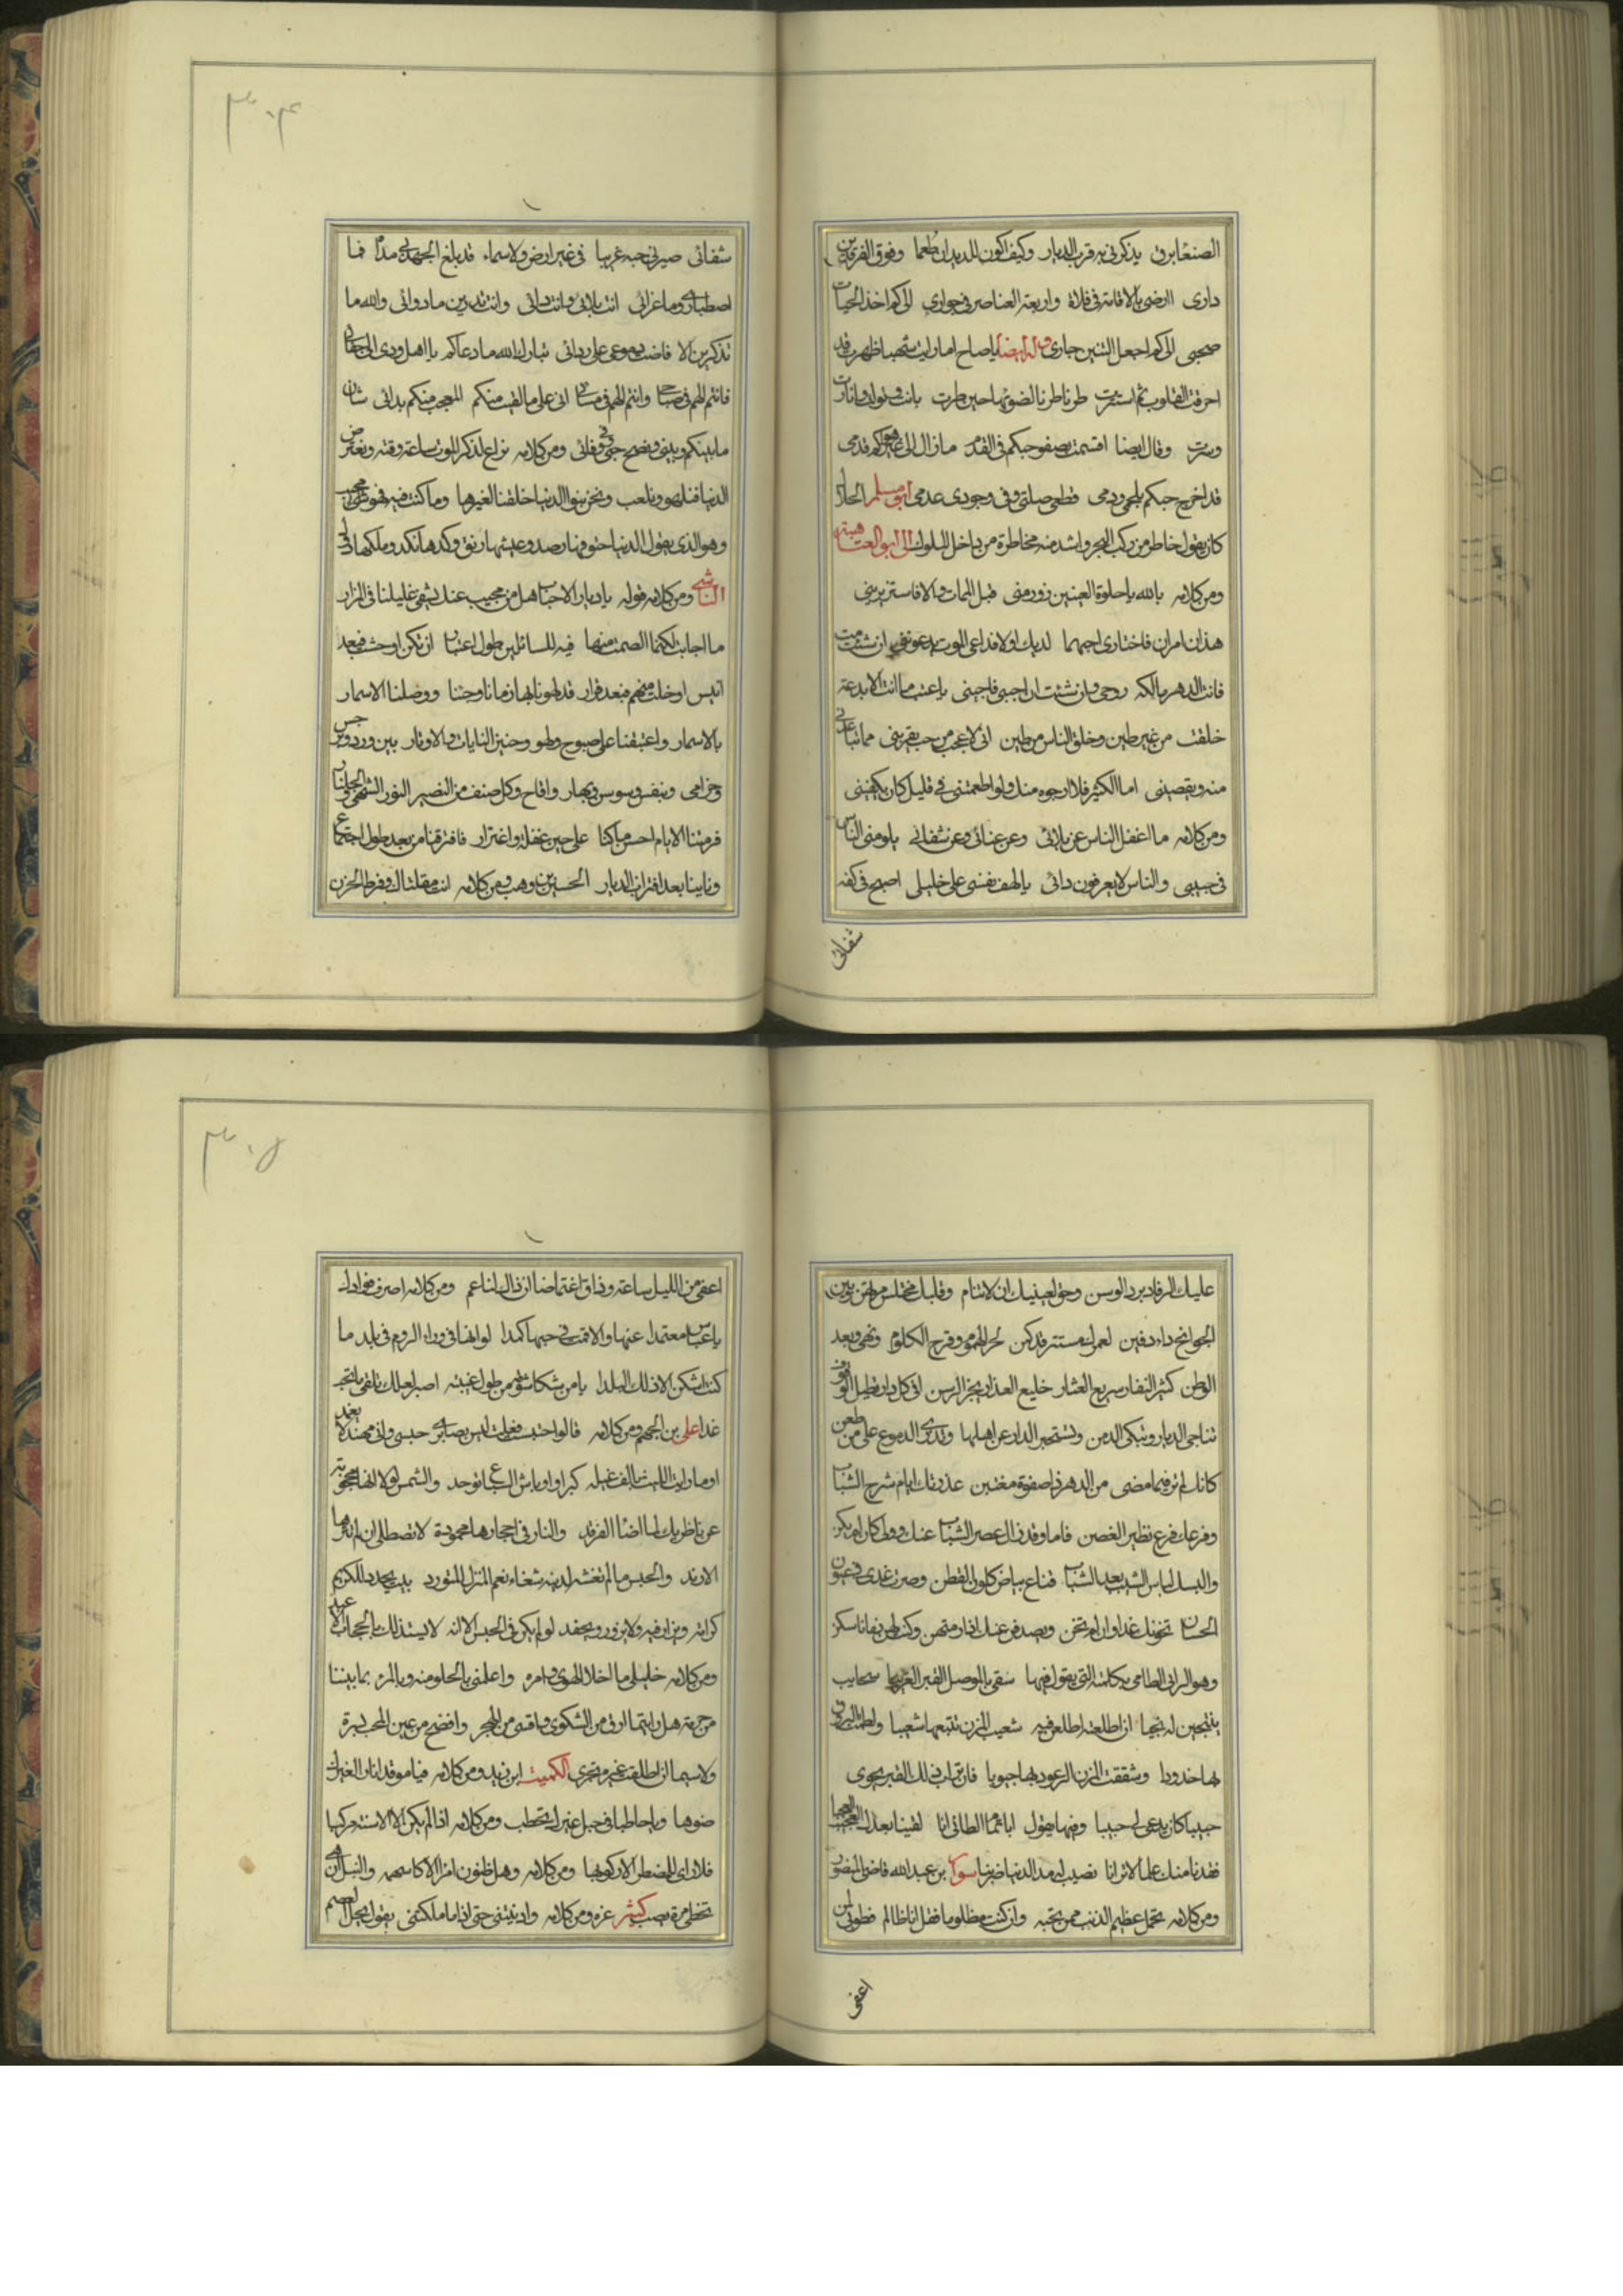 الصنعا برق يذكرني به قرب الديار وكيف اكون للديدان طعما وفوق الفرقدين
داري اارضى بالاقامة في فلاة واربعة العناصر في جواري الى كم اخذ الحيات
صحبى الى كم اجعل التنين جارى وله ايضا يا صاح اما رايت شهبا ظهرت قد
احرقت القلوب ثم استترت طرنا طربا لضوئها حين طرت بانت وتولد وانارت
وسرت وقال ايضا اقسمت بصفو حبكم في القدم ما زال الى غير هواكم قدمى
قد اخرج حبكم بلحمى ودمى قطعى صلتى وفى وجودى عدمى ابو مسلم الحلا
كان يقول خاطر من ركب البحر واشد منه مخاطرة من داخل الملوك الى ابو العتاهية
ومن كلامه بالله يا حلوة العينين زورينى قبل الممات والا فاستزيرينى
هذان امران فاختارى احبهما لديك اولا فداعى الموت يدعونى ان شئت مت
فانت الدهر مالكة روحى وان شئت ان احيى فاحيينى يا عتب ما انت الا بدعة
خلقت من غير طين وخلق الناس من طين انى لاعجب من حب يقربنى مما يباعدنى
منه ويقصينى اما الكثير فلا ارجوه منك ولو اطعمتنى فى قليل كان يكفينى
ومن كلامه ما اغفل الناس عن بلائى وعن عنائى وعن شقائى يلومنى الناس
فى حبيبى والناس لا يعرفون دائى يا لهف نفسى على خليلى اصبح فى كفه
شقائى
٣٠۴
شقائى صيرنى حبه غريبا فى غير ارض ولا سماء قد بلغ الجهد بى مداه فما
اصطبارى وما عزائى انت بلائى وانت دائى وانت تدرين ما دوائى والله ما
تذكرين الا فاضت دموعى على ردائى تبارك الله ما دعاكم يا اهل ودى الى جفائى
فانتم الهم فى صباحى وانتم الهم فى مسائى انى على ما لقيت منكم المعجب منكم بدائى شتان
ما بينكم وبينى وقبح حتى وفائى ومن كلامه نراع لذكر الموت ساعة وقته ونعترض
الدنيا فنلهو ونلعب ونحن بنوا الدنيا خلقنا لغيرها وما كنت فيه فهو شئ محبب
وهو الذى يقول الدنيا حتوفها رصد وعيشها رنق وكدها نكد وملكها دول
الناشى ومن كلامه قوله يا ديار الاحباب هل من مجيب عنك يشفى غليلنا فى المزار
ما اجابت لكنما الصمت منها فيه للسائلين طول اعتبار ان تكن اوحشت فبعد
انيس اوخلت منهم فبعد قرار قد لهونا بها زمانا وحينا ووصلنا الاسمار
بالاسمار واغتبقنا على صبوح ولهو وحنين النايات والاوتار بين ورد ونرجس
وخزامى وبنفسج وسوسن وبهار واقاح وكل صنف من النضير النور الشهى والجلنار
فرمتنا الايام احسن ما كنا على حين غفلة واغترار فافترقنا من بعد طول اجتماع
ونأينا بعد اقتراب الديار الحسين بن وهب ومن كلامه ابت مقلتاك وفرط الحزن
عليك الرقاد برد الوسن وحق لعينيك ان لا تنام وقلبك مختلس مرتهن وبين
الجوانح داء دفين لعمرك مستتر قد كمن لحر الهموم وقرح الكلوم ونهى وبعد
الوطن كثير النفار سريع العثار خليع العذار يجر الرسن لفى كل دار تطيل الوقوف
تناجى الديار وتبكى الدمن وتستخبر الدار عن اهلها وتذرى الدموع على من ظعن
كانك لم تر فيما مضى من الدهر ذا صفوة مغتبن عذرتك ايام شرخ الشباب
وفرعك فرع نظير الغصن فاما وقد زال عصر الشباب عنك وولى كان لم يكن
والبسك لباس الشيب بعد الشباب قناع بياض كلون القطن وصرت غدى وعيون
الحسان تخونك غدا وان لم تخن ويصدفن عنك اذا رمتهن وكنت لهن زمانا سكن
وهو الراثى الطامى بكلمته التى يقول فيها سقى بالموصل القبر الغريبا سحايب
ينتجبن له نحيبا اذا اطلعته اطلعن فيه شعيب المزن تتبعها شعيبا ولطمت البروق
لها خدودا وشققت المزن الرعود بها جيوبا فان تراب ذلك القبر يحوى
حبيبا كان يدعى لى حبيبا وفيها يقول ابا تمام الطائى انا لقينا بعدك العجب العجيبا
فقدنا منك علما لا ترانا نصيب له مدا الدنيا ضريبا سوار بن عبد الله قاضى المنصور
ومن كلامه تحمل عظيم الذنب ممن تحبه وان كنت مظلوما فقل انا ظالم فطوبى لمن
اعفى
٣٠۵
اعفى من الليل ساعة وذاق اغتماضا ان ذاك لناعم ومن كلامه اصرف فوادك
يا عباس معتمدا عنها والا فمت فى حبها كمدا لو انها فى وراء الروم فى بلد ما
كنت اسكن الا ذلك البلدا يا من شكا شوقه من طول غيبته اصبر لعلك تلقى ما تحب
غدا على بن الجهم ومن كلامه قالوا حبست فقلت ليس بضاير حبسى واى مهند لا يغمد
اوما رايت الليث يالف غيله كبرا واوباش السباع توحد والشمس لولا انها محجوبة
عن ناظريك لما اضاء الفرقد والنار فى احجارها مخبوءة لا تصطلى ان لم تثرها
الازند والحبس ما لم تغشه لدنية شنعاء نعم المنزل المتورد بيت يجدد للكريم
كرامة ويزار فيه ولا يزور ويحفد لو لم يكن فى الحبس الا انه لا يستذلك بالحجاب الاعبد
ومن كلامه خليلى ما احلا الهوى وامره واعلمنى بالحلو منه وبالمر بما بيننا
من حرمة هل رايتما ارق من الشكوى واقسى من الهجر وافضح من عين المحب لسره
ولا سيما ان اطلقت عبرة تجرى الكميت ابن زيد ومن كلامه فيا موقدا نارا لغيرك
ضوءها ويا حاطبا فى حبل غيرك تحطب ومن كلامه اذا لم يكن الا الاسنة مركبا
فلا راى للمضطر الا ركوبها ومن كلامه وهل ظنون امرئ الا كاسهمه والنبل ان
تخطى مرة يصب كثير عزه ومن كلامه وادنيتنى حتى اذا ما ملكتنى بقول يحل العصم